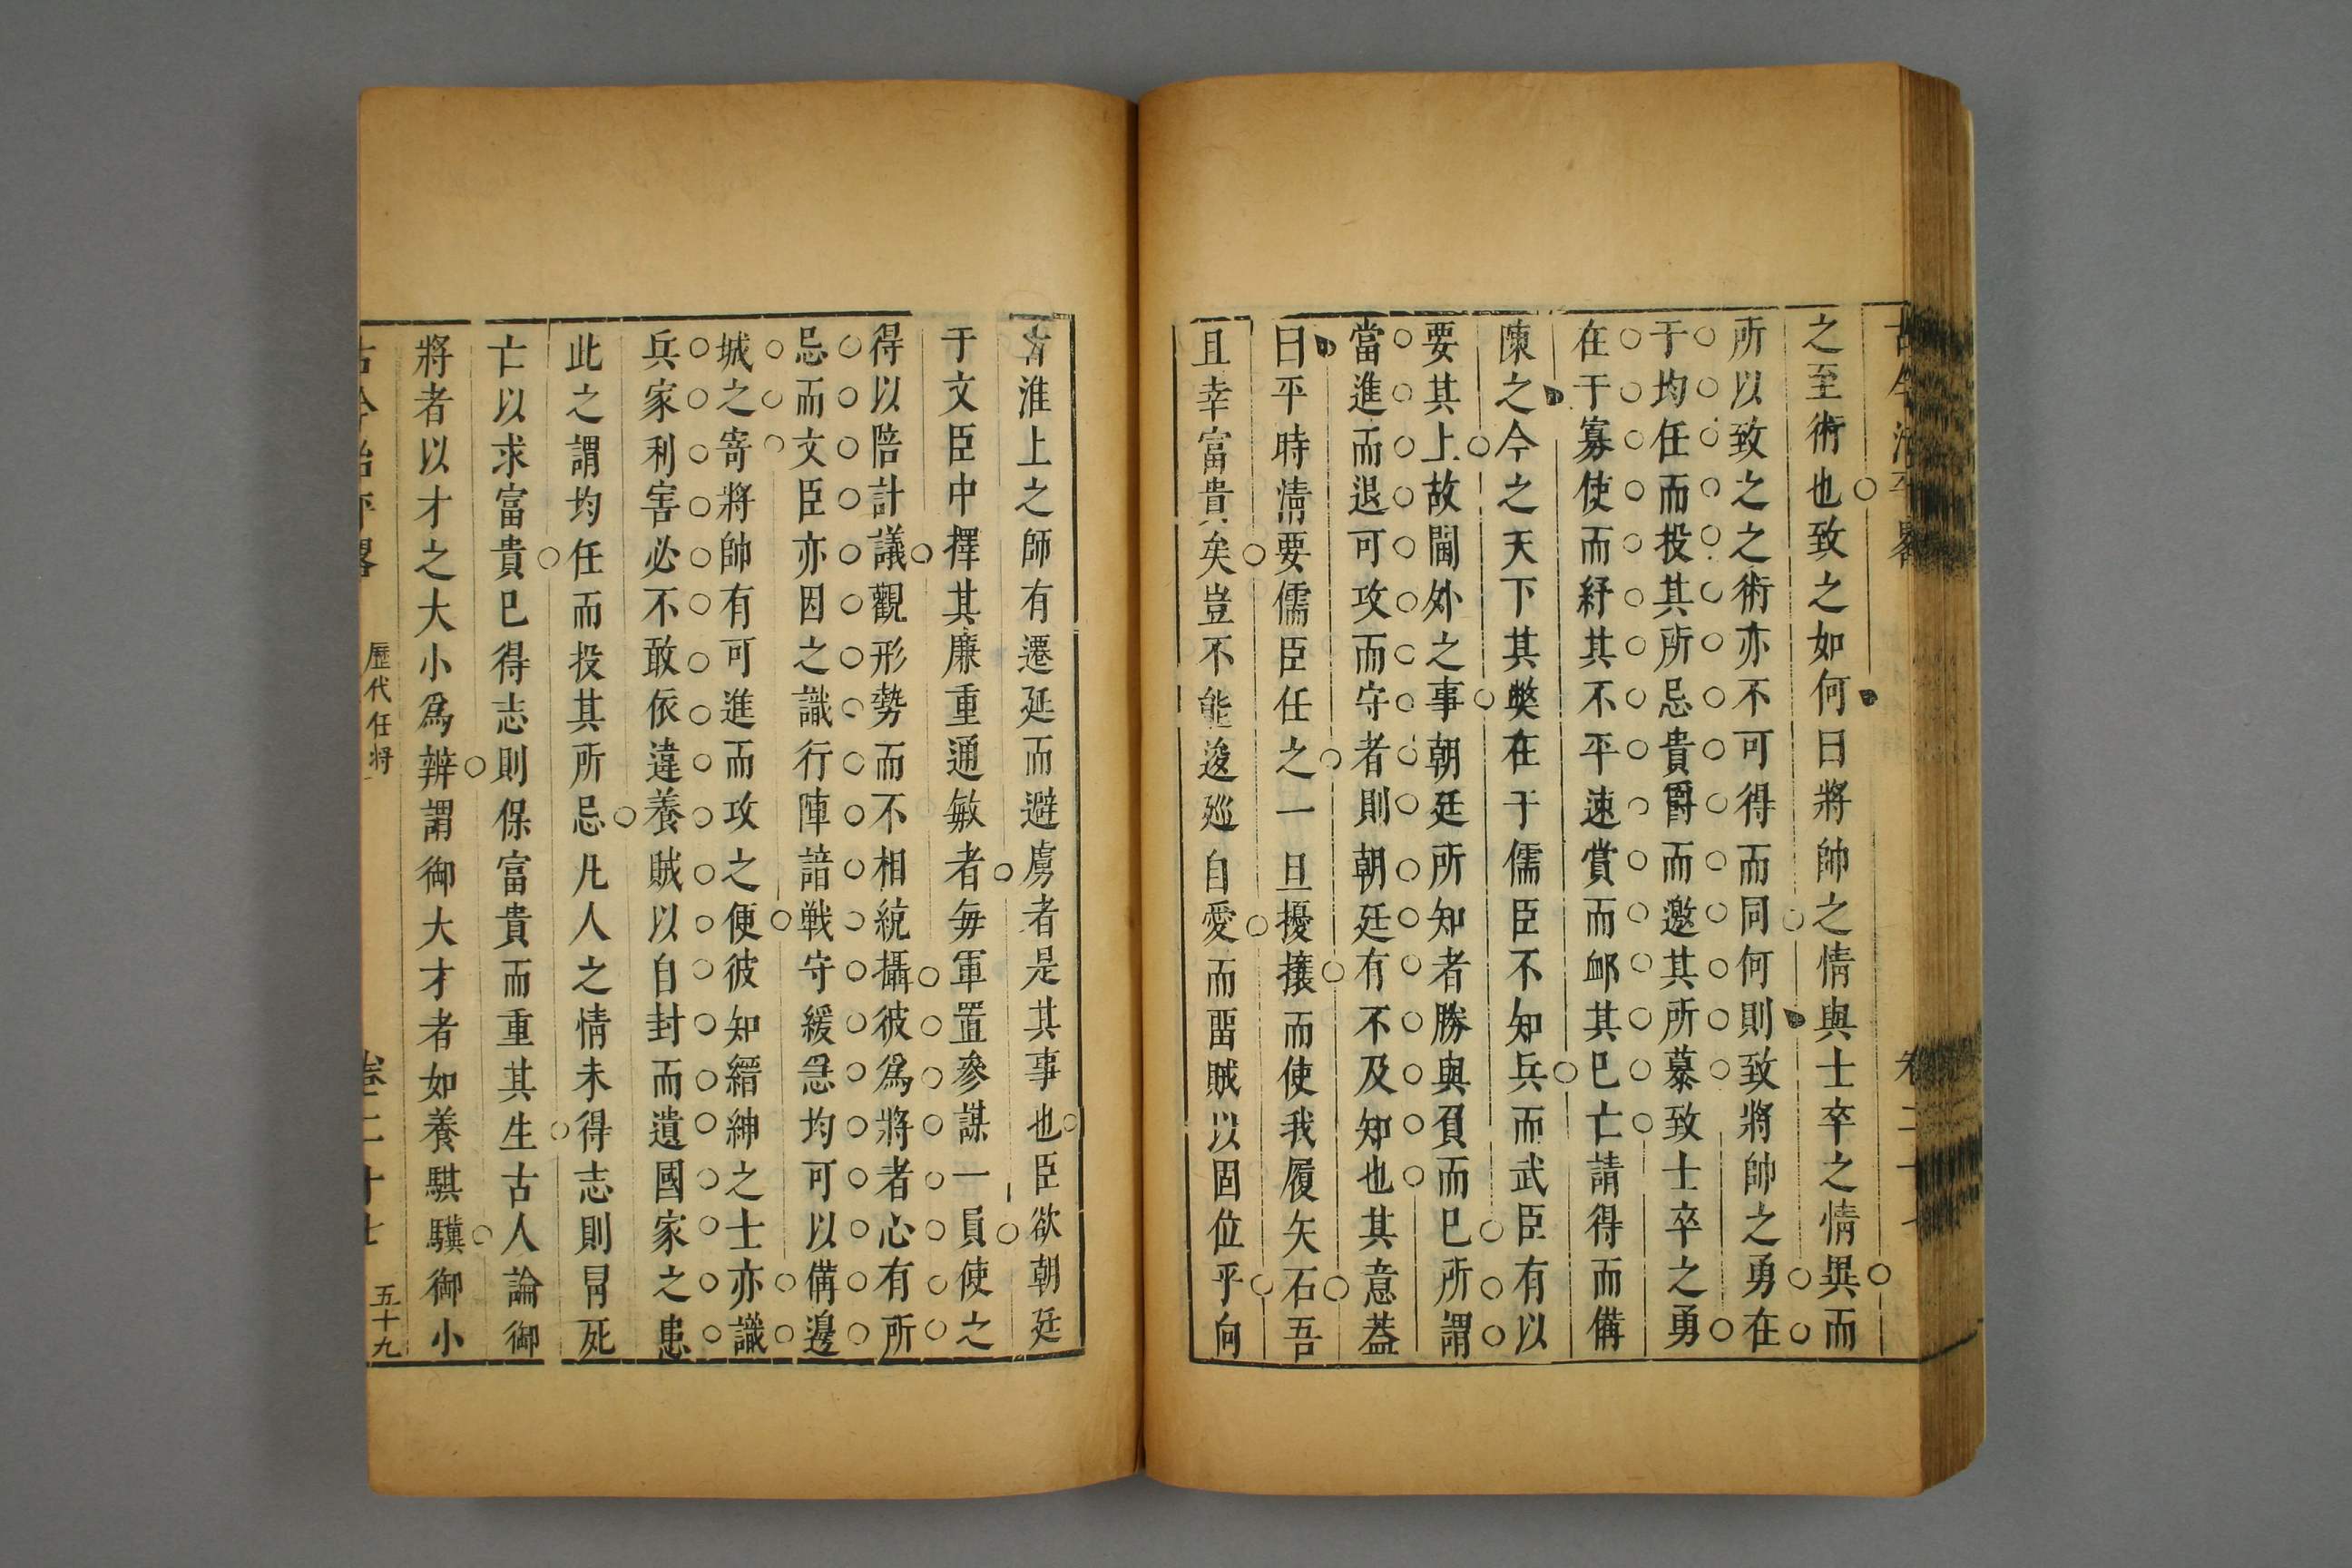 之至術也致之如何曰將帥之情與士卒之情異而
所以致之之術亦不可得而同何則致將帥之勇在
于均任而投其所忌貴爵而邀其所慕致士卒之勇
在于寡使而紓其不平速賞而卹其已亡請得而備
陳之今之天下其獘在于儒臣不知兵而武臣有以
要其上故閫外之事朝廷所知者勝與負而已所謂
當進而退可攻而守者則朝廷有不及知也其意葢
曰平時清要儒臣任之一旦擾攘而使我履矢石吾
且幸富貴矣豈不能逡廵自愛而畱賊以固位乎向
淮上之師有遷延而避虜者是其事也臣欲朝廷
于文臣中擇其廉重通敏者每軍置參謀一員使之
得以陪計議觀形勢而不相統攝彼爲將者心有所
忌而文臣亦因之識行陣諳戰守緩急均可以備邊
城之寄將帥有可進而攻之便彼知縉紳之士亦識
兵家利害必不敢依違養賊以自封而遺國家之患
此之謂均任而投其所忌凡人之情未得志則冐死
亡以求富貴已得志則保富貴而重其生古人論御
將者以才之大小爲辨謂御大才者如養騏驥御小
歷代任將
五十九